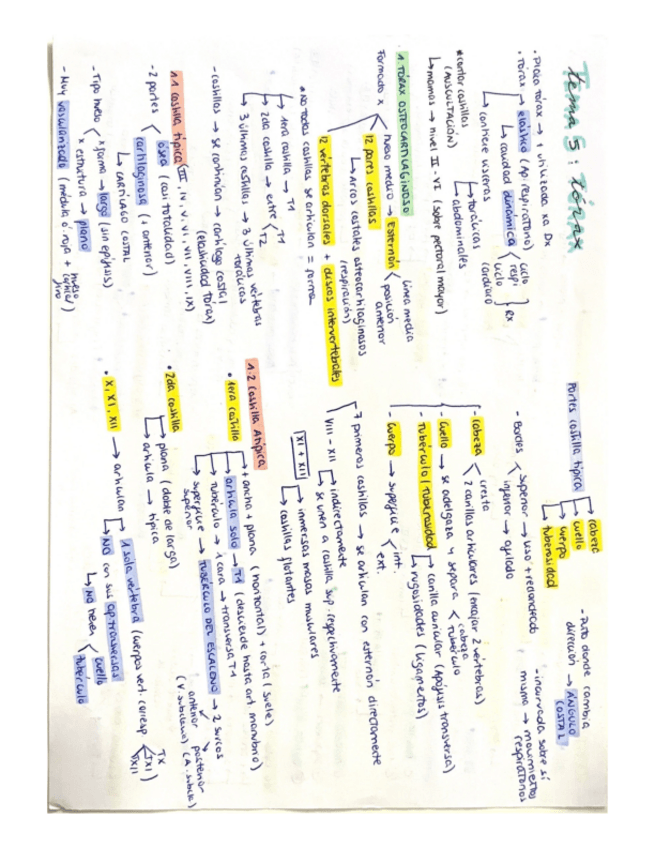 tema 5: tórax
· Placa tórax → + utilizada xa Dx
· Tórax → elástica (Ap. respiratorio)
↳ cavidad dinámica < ciclo respi. ciclo cardíaco } RX
↳ contiene vísceras
↳ torácicas
↳ abdominales
*contar costillas
(AUSCULTACIÓN)
↳ mamas → nivel II-VI (sobre pectoral mayor)
1. TÓRAX OSTEOCARTILAGINOSO
Formado x < hueso medio → Esternón < línea media posición anterior
12 pares costillas
↳ Arcos costales osteocartilaginosos
(respiración)
12 vértebras dorsales + discos intervertebrales
* No todas costillas se articulan = forma
↳ 1era costilla → T1
↳ 2da costilla → entre < T1 T2
↳ 3 últimas costillas → 3 últimas vértebras
torácicas
- costillas → se continúan → cartílago costal
(elasticidad tórax)
1.1 costilla típica (III, IV, V, VI, VII, VIII, IX)
- 2 partes < óseo (casi totalidad)
cartilaginosa (+ anterior)
↳ CARTÍLAGO COSTAL
- Tipo hueso < x forma → largo (sin epífisis)
x estrutura → plano
- Muy vascularizado (médula ó. roja + hueso cortical fino)
Partes costilla típica
cabeza
cuello
cuerpo
tuberosidad
- Pto donde cambia
dirección → ÁNGULO
COSTAL
- Bordes < superior → liso + redondeado
inferior → afilado
- incurvada sobre sí
misma → movimientos
respiratorios
- cabeza < cresta
2 carillas articulares (mayor 2 vértebras)
- cuello → se adelgaza y separa < cabeza tubérculo
- Tubérculo / Tuberosidad → carilla auricular (Apófisis transversa)
↳ rugosidades (ligamentos)
- cuerpo → superficie < int. ext.
7 primeras costillas → se articulan con esternón directamente
VIII - XII → indirectamente
↳ se unen a costilla sup. respectivamente
XI + XII → inmersas masas musculares
↳ costillas flotantes
1.2 Costilla Atípica
· 1era costilla → + ancha + plana (horizontal) + corta (suele)
→ articula solo → T1 (desciende hasta art. manubrio)
→ Tubérculo → 1 cara → transversa T1
→ superficie superior → TUBÉRCULO DEL ESCALENO → 2 surcos
anterior posterior
(V. subclavia) (A. subclv)
· 2da costilla → plana (doble de larga)
↳ articula → típica
· X, XI, XII → articulan → 1 sola vértebra (cuerpos vert. corresp < TX TXI TXII)
↳ NO con sus ap. transversas
↳ NO tienen < cuello tubérculo